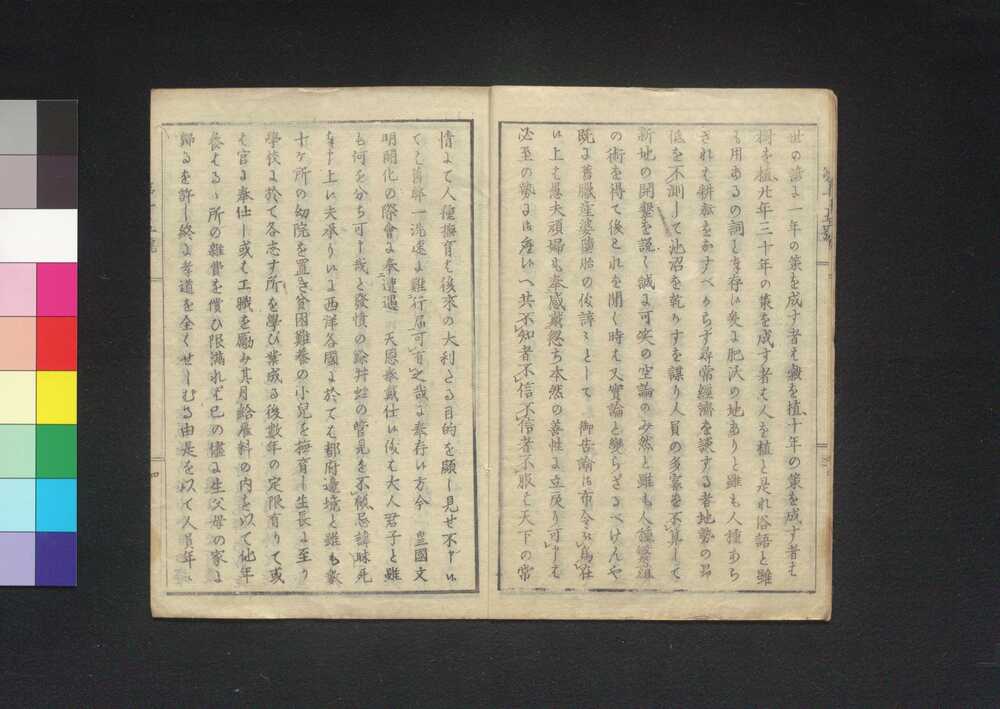 世の諺に一年の策を成す者は穀を植十年の策を成す者は
樹を植比年三十年の策を成す者は人を植と是れ俗語と雖
も用あるの詞と奉存候爰に肥沃の地ありと雖も人種あら
ざれは耕耘をなすべからず尋常經濟を談する者地勢の昂
低を不訓して沼を乾かすを謀り人員の多寡を不算して
新地の開墾を説く誠に可笑の空論のみ然と雖も人種繁殖
の術を得て後これを聞く時は又實論と變らざるべけんや
既に舊臘産婆墮胎の俊諱〻として御告諭御布令に為在
候上は愚夫頑婦も奉感戴忽ち本然の善性に立戻り可申は
必至の勢には候へ共不知者不信不信者不服は天下の常
情にて人種撫育は後來の大利たる目的を顕し見せ不申候
ては舊弊一洗速に難行届可有之哉に奉存候方今 皇國文
明開化の際會に奉遭遇 天恩奉戴仕候儀は大人君子と雖
も何を分ち可申哉と發憤の餘井蛙の管見を不顧忌諱昧死
奉申上候夫承り候に西洋各國に於ても都府邊境と雖も數
十ヶ所の幼院を置き貧困難養の小兒を撫育し生長に至り
學校に於て各志す所を學び業成る後數年の定限有りて或
は官に奉仕し或は工職を勵み其月給雇料の内を以て他年
養はるゝ所の雜費を償ひ限滿れば已の儘に生父母の家に
歸るを許し終に孝道を全くせしむる由是を以て人員年